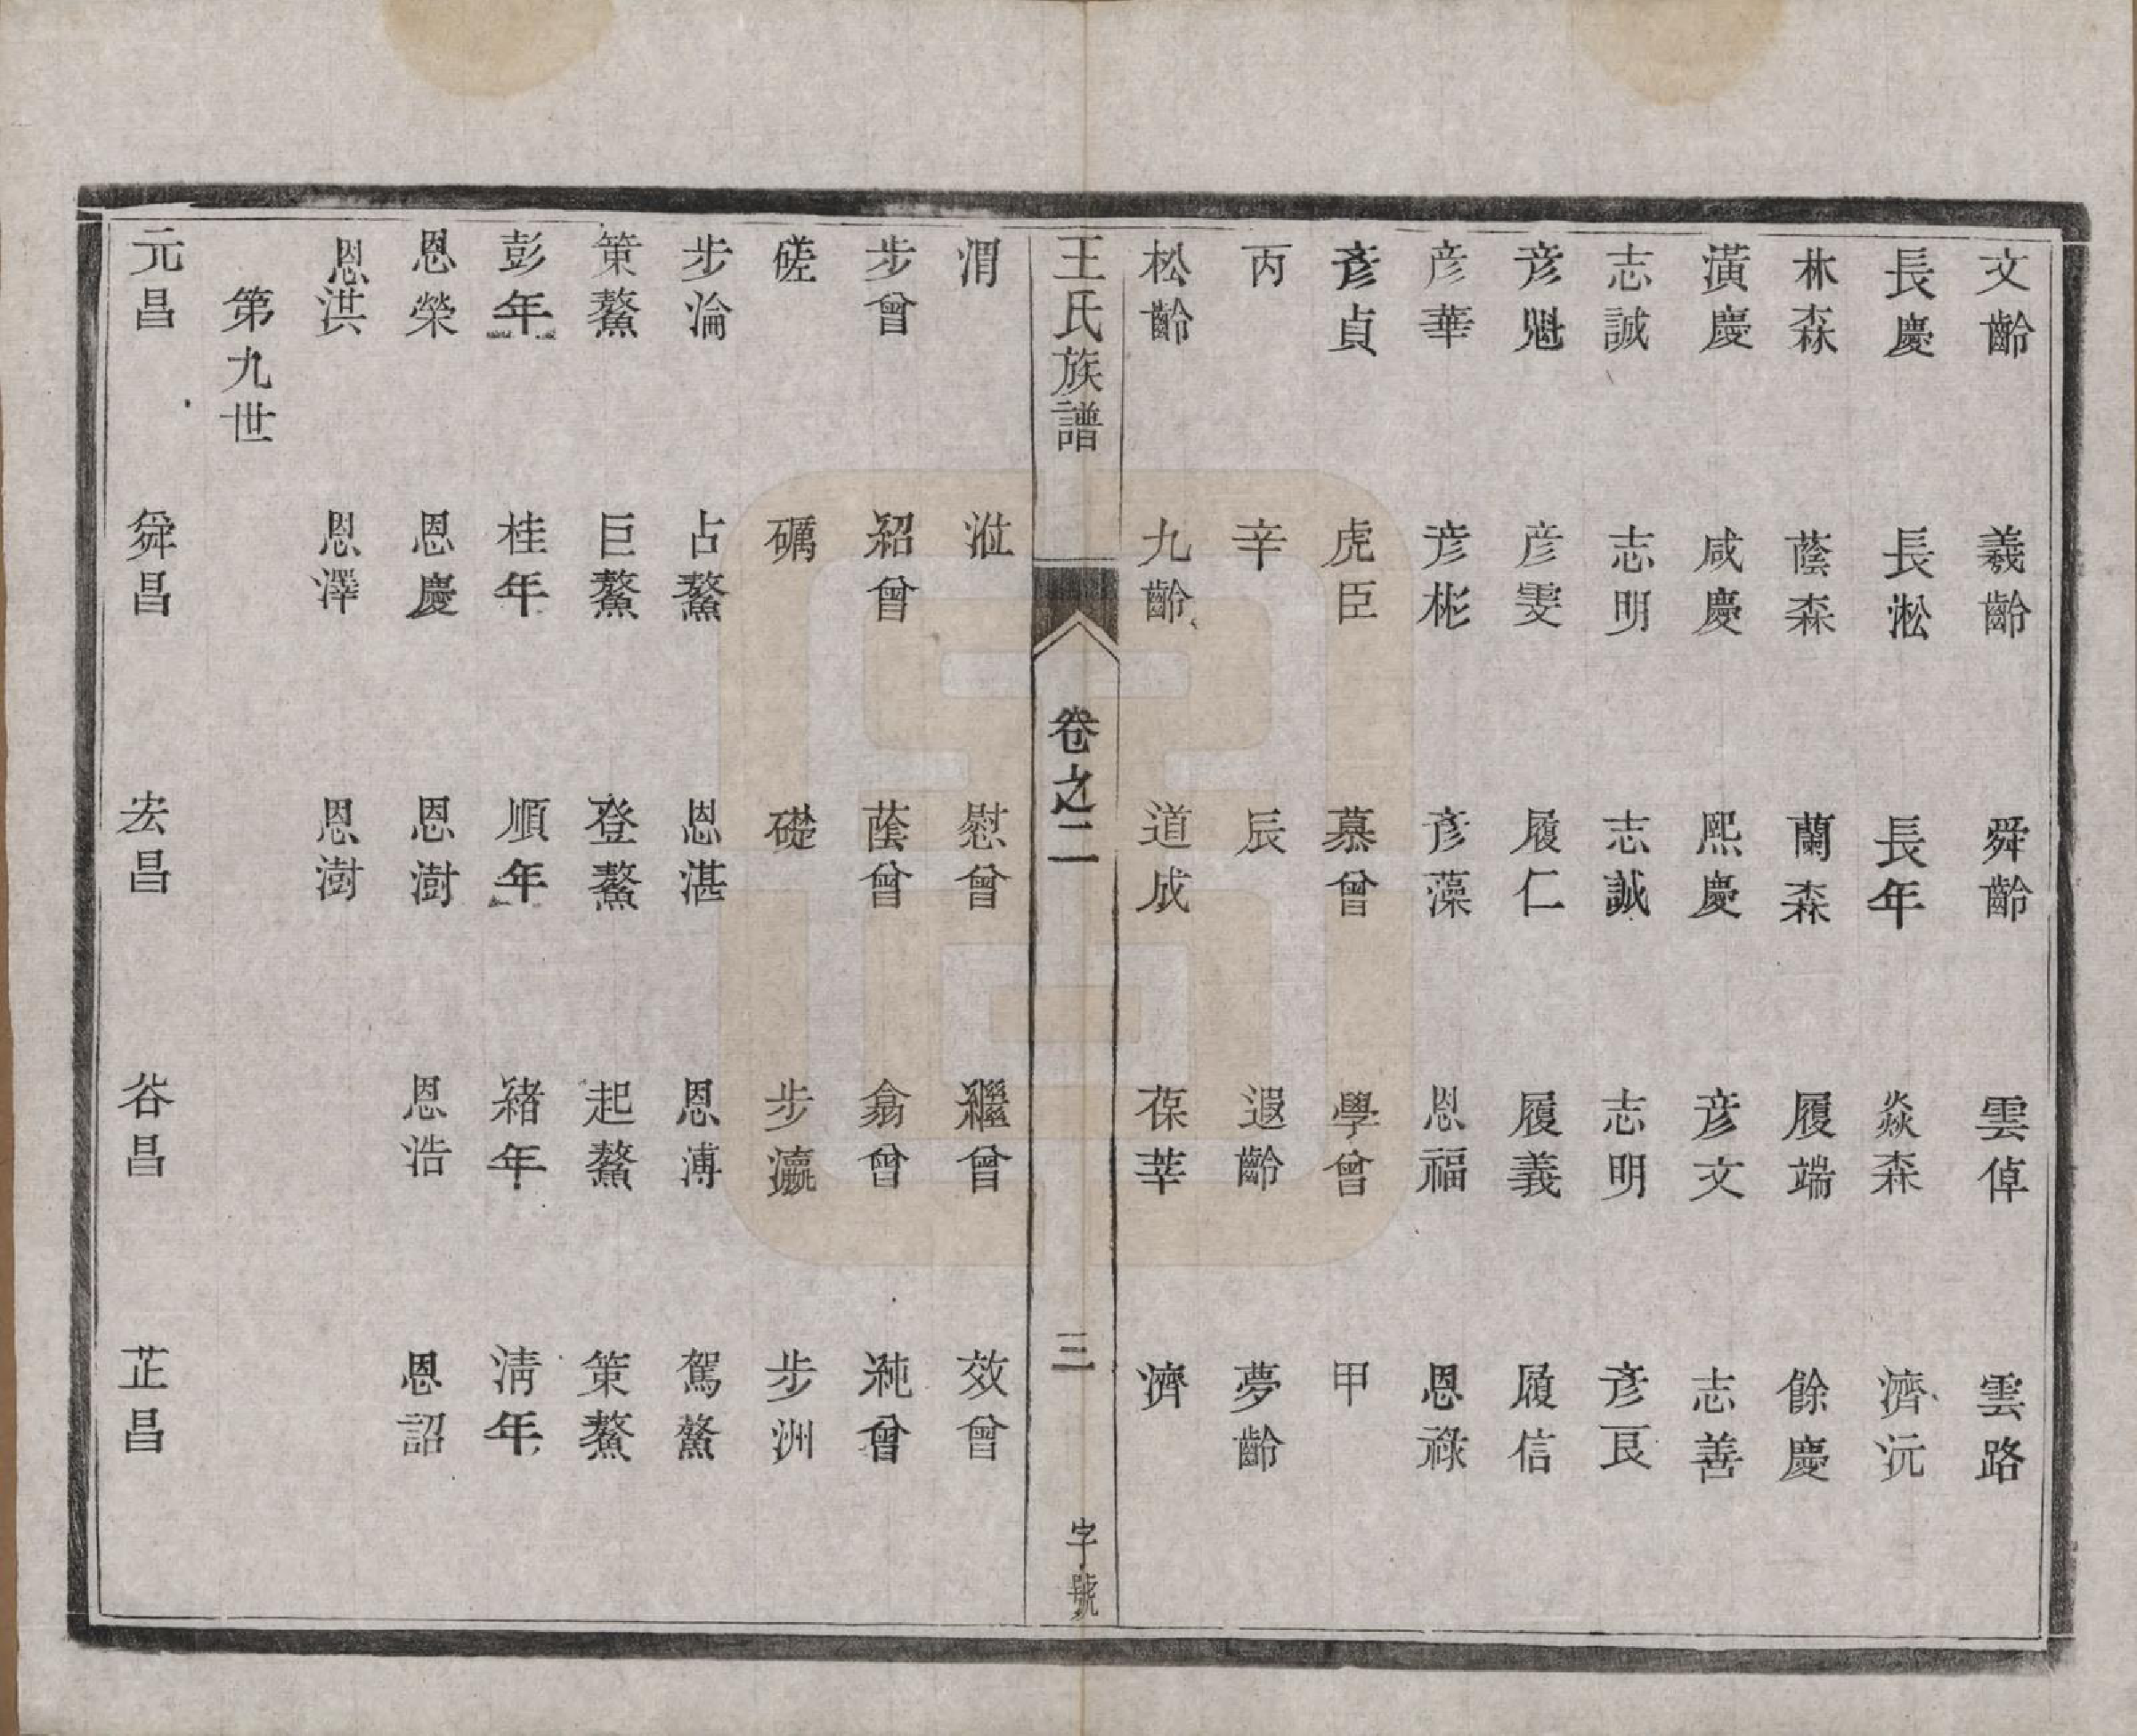 文齡 羲齡 舜齡 雲倬 雲路
長慶 長淞 長年 焱森 濟沅
林森 蔭森 蘭森 履端 餘慶
潢慶 咸慶 熙慶 彥文 志善
志誠 志明 志誠 志明 彥良
彥魁 彥雯 履仁 履義 履信
彥華 彥彬 彥藻 恩福 恩祿
彥貞 虎臣 慕曾 學曾 甲
丙 辛 辰 遐齡 夢齡
松齡 九齡 道成 葆莘 濟
王氏族譜 卷之二 三 字號
渭 泚 慰曾 繼曾 效曾
步曾 紹曾 蔭曾 翕曾 純曾
磋 礪 礎 步瀛 步洲
步淪 占鰲 恩湛 恩溥 駕鰲
策鰲 巨鰲 登鰲 起鰲 策鰲
彭年 桂年 順年 緒年 淸年
恩榮 恩慶 恩澍 恩浩 恩詔
恩淇 恩澤 恩澍
第九世
元昌 舜昌 宏昌 谷昌 芷昌